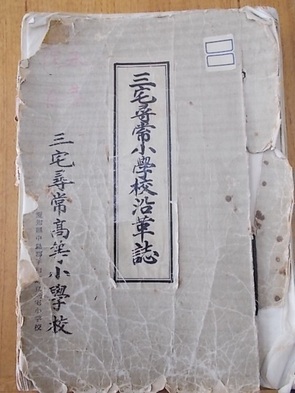 三宅尋常小學校沿革誌
三宅尋常高等小學校